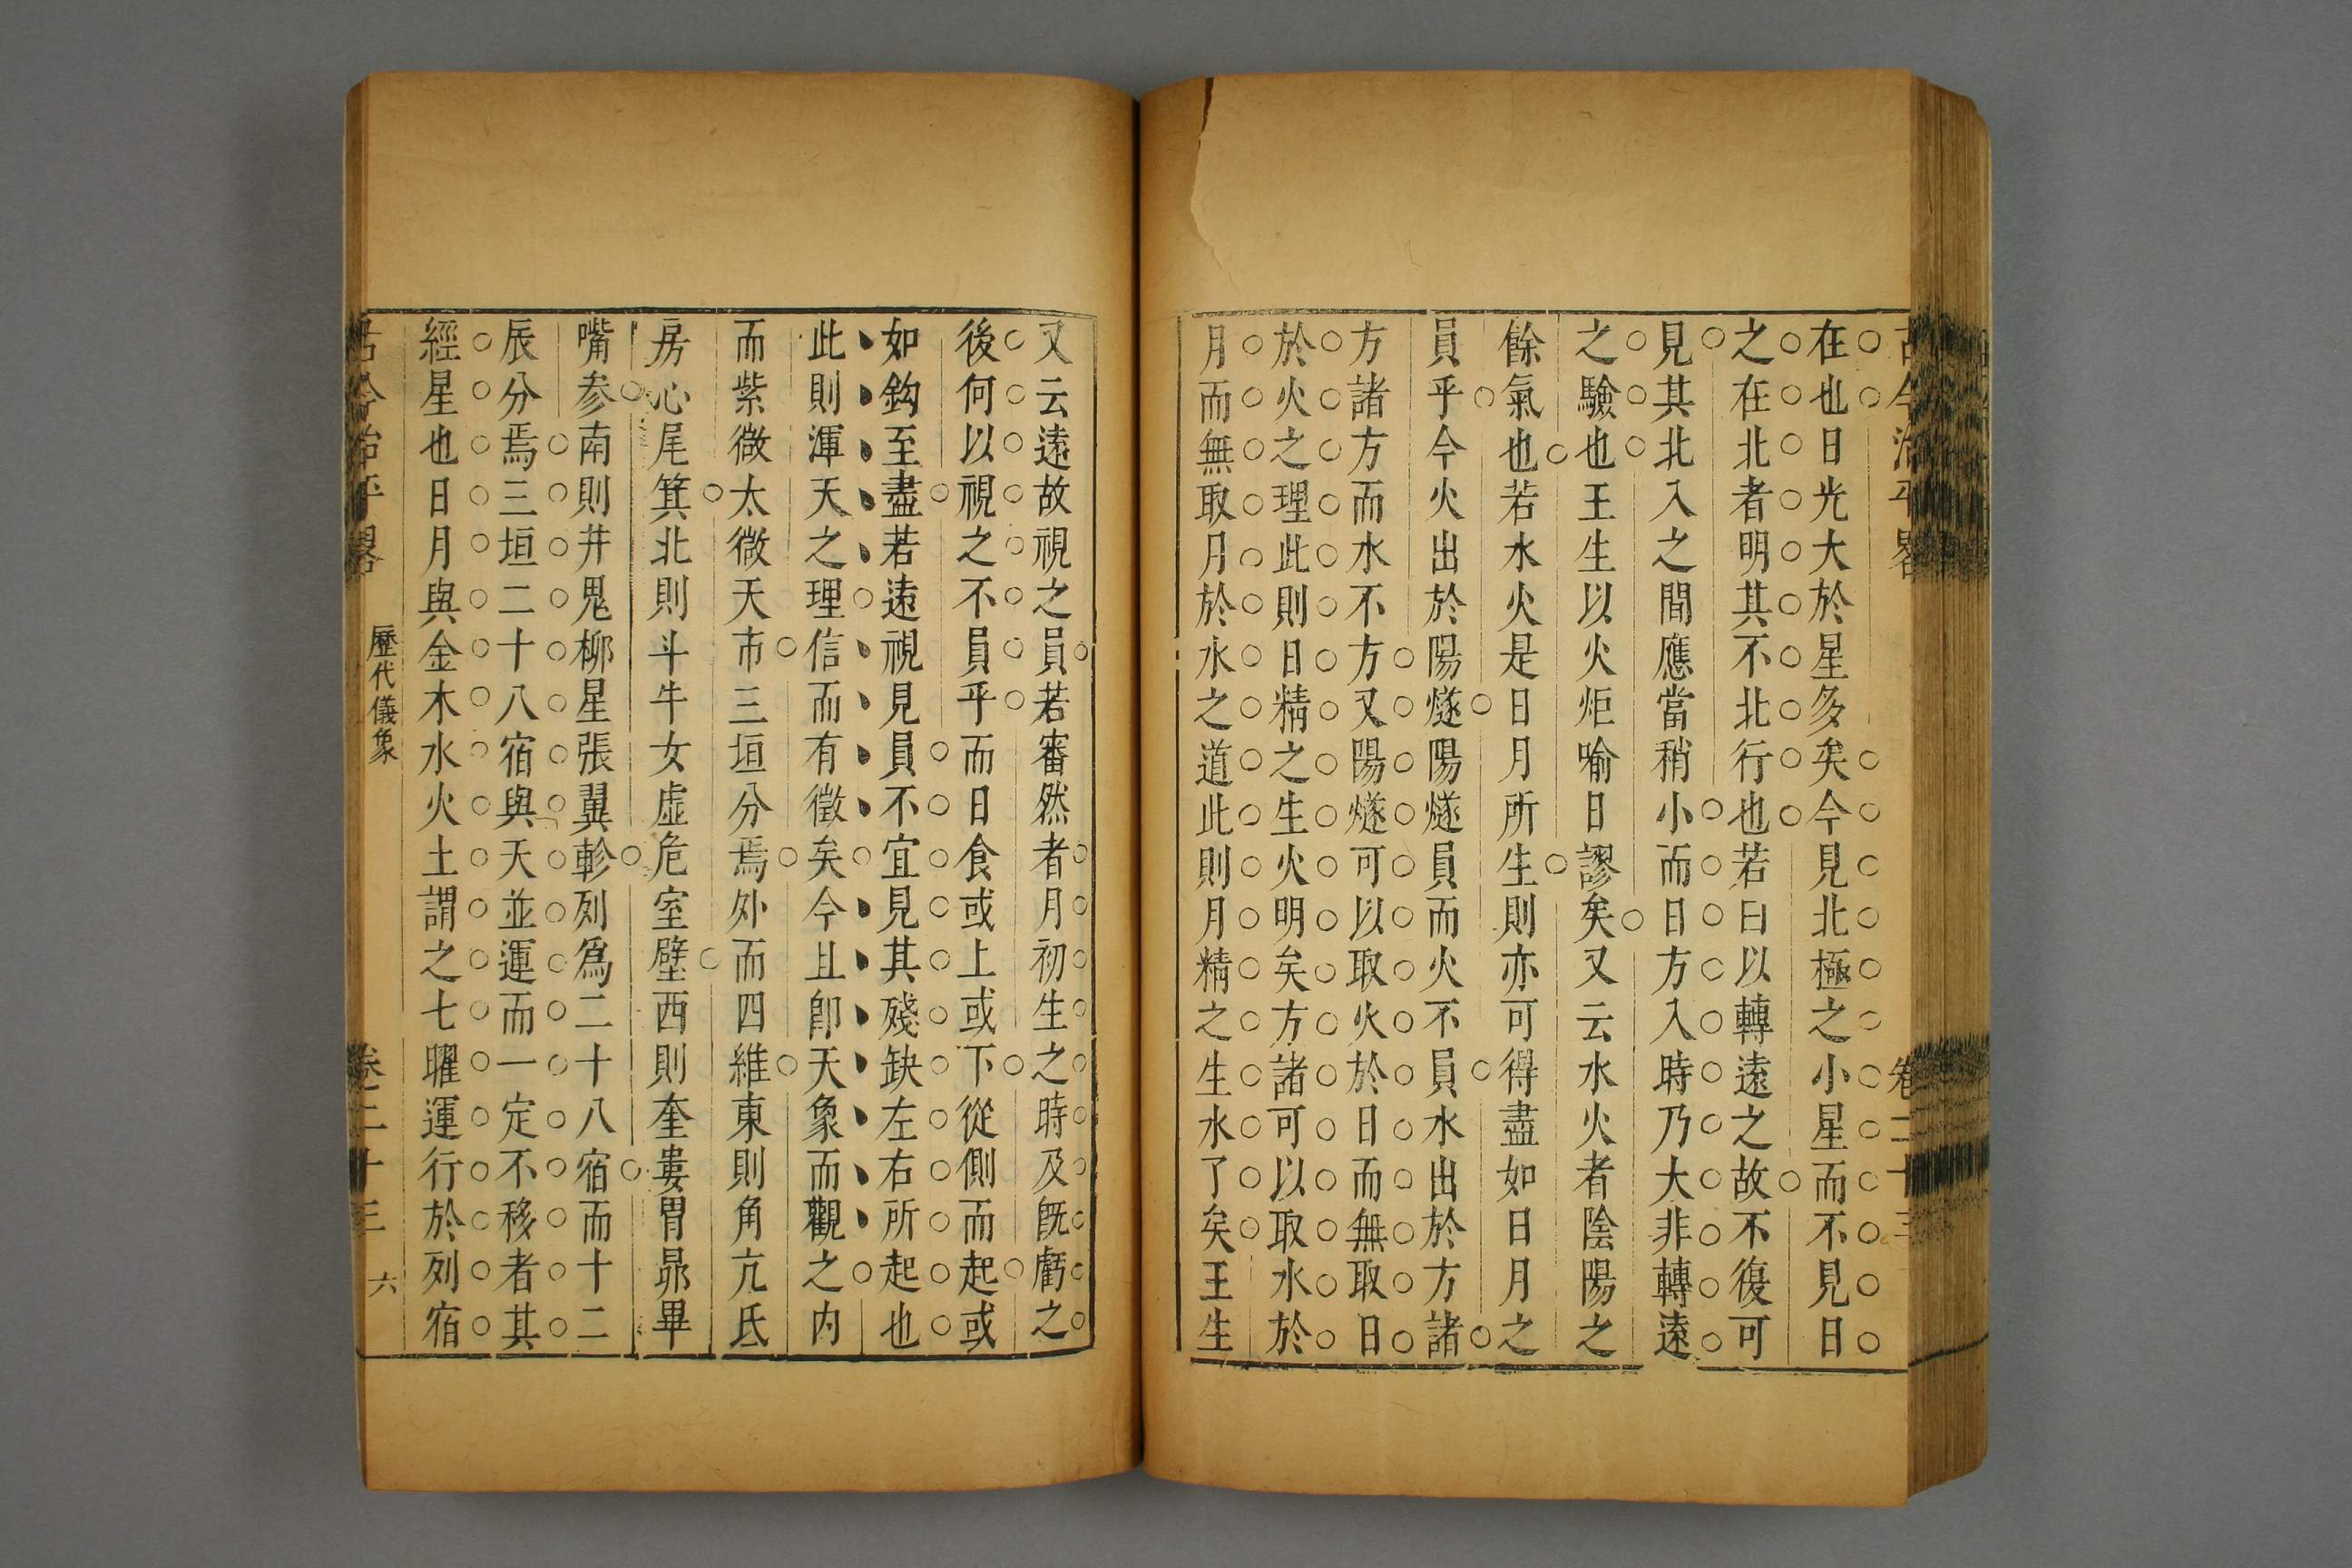 古今治平畧 卷二十三
在也日光大於星多矣今見北極之小星而不見日
之在北者明其不北行也若曰以轉遠之故不復可
見其北入之間應當稍小而日方入時乃大非轉遠
之驗也王生以火炬喻日謬矣又云水火者陰陽之
餘氣也若水火是日月所生則亦可得盡如日月之
員乎今火出於陽燧陽燧員而火不員水出於方諸
方諸方而水不方又陽燧可以取火於日而無取日
於火之理此則日精之生火明矣方諸可以取水於
月而無取月於水之道此則月精之生水了矣王生
又云遠故視之員若審然者月初生之時及旣虧之
後何以視之不員乎而日食或上或下從側而起或
如鈎至盡若遠視見員不宜見其殘缺左右所起也
此則渾天之理信而有徵矣今且卽天象而觀之内
而紫微太微天市三垣分焉外而四維東則角亢氐
房心尾箕北則斗牛女虛危室壁西則奎婁胃昴畢
嘴参南則井鬼柳星張翼軫列爲二十八宿而十二
辰分焉三垣二十八宿與天並運而一定不移者其
經星也日月與金木水火土謂之七曜運行於列宿
古今治平畧 歷代儀象 卷二十三 六